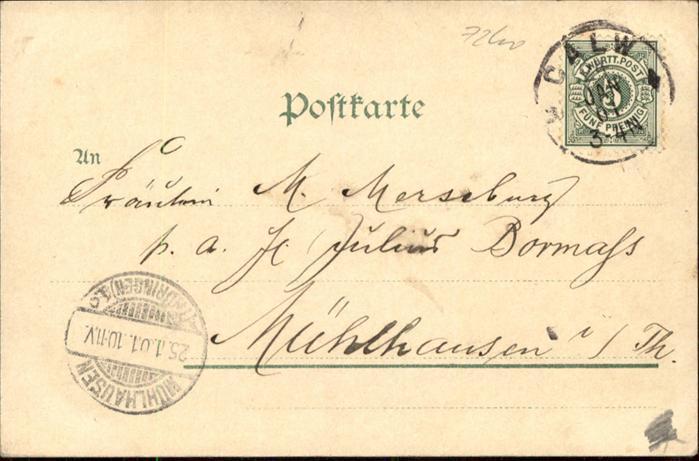 CALW
K. WÜRTT. POST
JAN
FÜNF PFENNIG
3-4N
Postkarte
An
Fräulein M. Merseburg
p. a. H Julius Bormaß
Mühlhausen i/Th.
MÜHLHAUSEN
25.1.01.10-11.V.